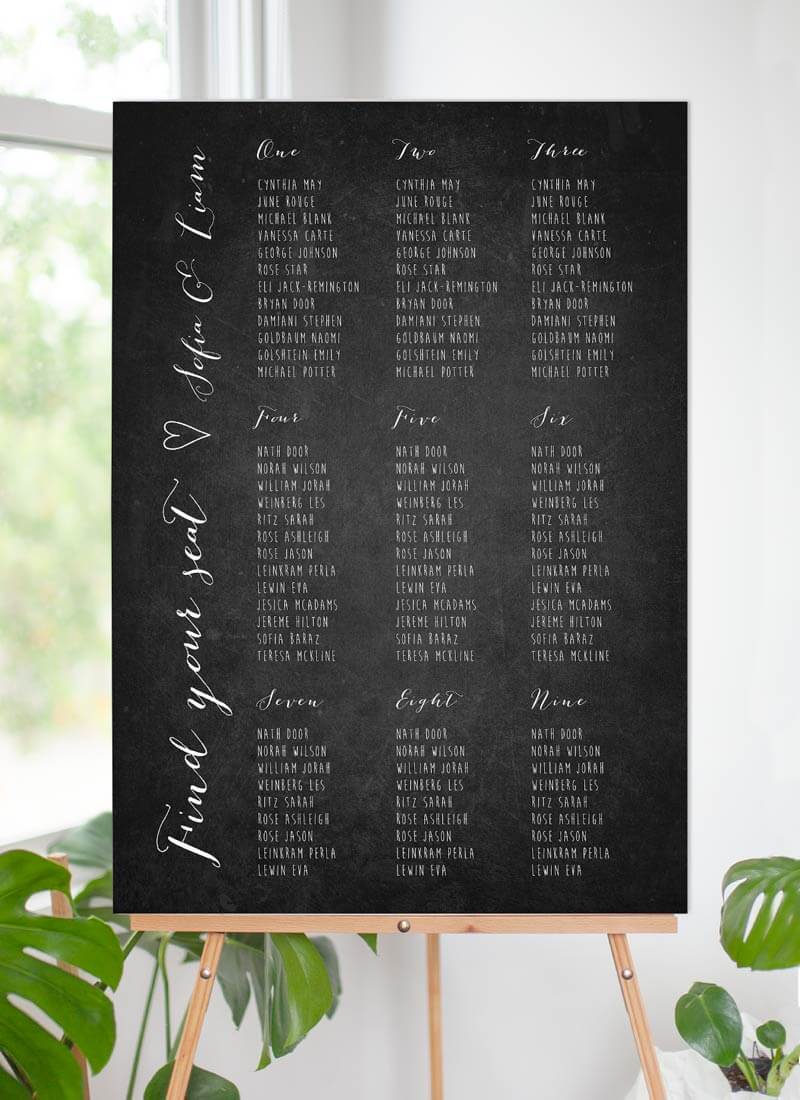 Find your seat ♡ Sofia & Liam
One
CYNTHIA MAY
JUNE ROUGE
MICHAEL BLANK
VANESSA CARTE
GEORGE JOHNSON
ROSE STAR
ELI JACK-REMINGTON
BRYAN DOOR
DAMIANI STEPHEN
GOLDBAUM NAOMI
GOLSHTEIN EMILY
MICHAEL POTTER
Two
CYNTHIA MAY
JUNE ROUGE
MICHAEL BLANK
VANESSA CARTE
GEORGE JOHNSON
ROSE STAR
ELI JACK-REMINGTON
BRYAN DOOR
DAMIANI STEPHEN
GOLDBAUM NAOMI
GOLSHTEIN EMILY
MICHAEL POTTER
Three
CYNTHIA MAY
JUNE ROUGE
MICHAEL BLANK
VANESSA CARTE
GEORGE JOHNSON
ROSE STAR
ELI JACK-REMINGTON
BRYAN DOOR
DAMIANI STEPHEN
GOLDBAUM NAOMI
GOLSHTEIN EMILY
MICHAEL POTTER
Four
NATH DOOR
NORAH WILSON
WILLIAM JORAH
WEINBERG LES
RITZ SARAH
ROSE ASHLEIGH
ROSE JASON
LEINKRAM PERLA
LEWIN EVA
JESICA MCADAMS
JEREME HILTON
SOFIA BARAZ
TERESA MCKLINE
Five
NATH DOOR
NORAH WILSON
WILLIAM JORAH
WEINBERG LES
RITZ SARAH
ROSE ASHLEIGH
ROSE JASON
LEINKRAM PERLA
LEWIN EVA
JESICA MCADAMS
JEREME HILTON
SOFIA BARAZ
TERESA MCKLINE
Six
NATH DOOR
NORAH WILSON
WILLIAM JORAH
WEINBERG LES
RITZ SARAH
ROSE ASHLEIGH
ROSE JASON
LEINKRAM PERLA
LEWIN EVA
JESICA MCADAMS
JEREME HILTON
SOFIA BARAZ
TERESA MCKLINE
Seven
NATH DOOR
NORAH WILSON
WILLIAM JORAH
WEINBERG LES
RITZ SARAH
ROSE ASHLEIGH
ROSE JASON
LEINKRAM PERLA
LEWIN EVA
Eight
NATH DOOR
NORAH WILSON
WILLIAM JORAH
WEINBERG LES
RITZ SARAH
ROSE ASHLEIGH
ROSE JASON
LEINKRAM PERLA
LEWIN EVA
Nine
NATH DOOR
NORAH WILSON
WILLIAM JORAH
WEINBERG LES
RITZ SARAH
ROSE ASHLEIGH
ROSE JASON
LEINKRAM PERLA
LEWIN EVA